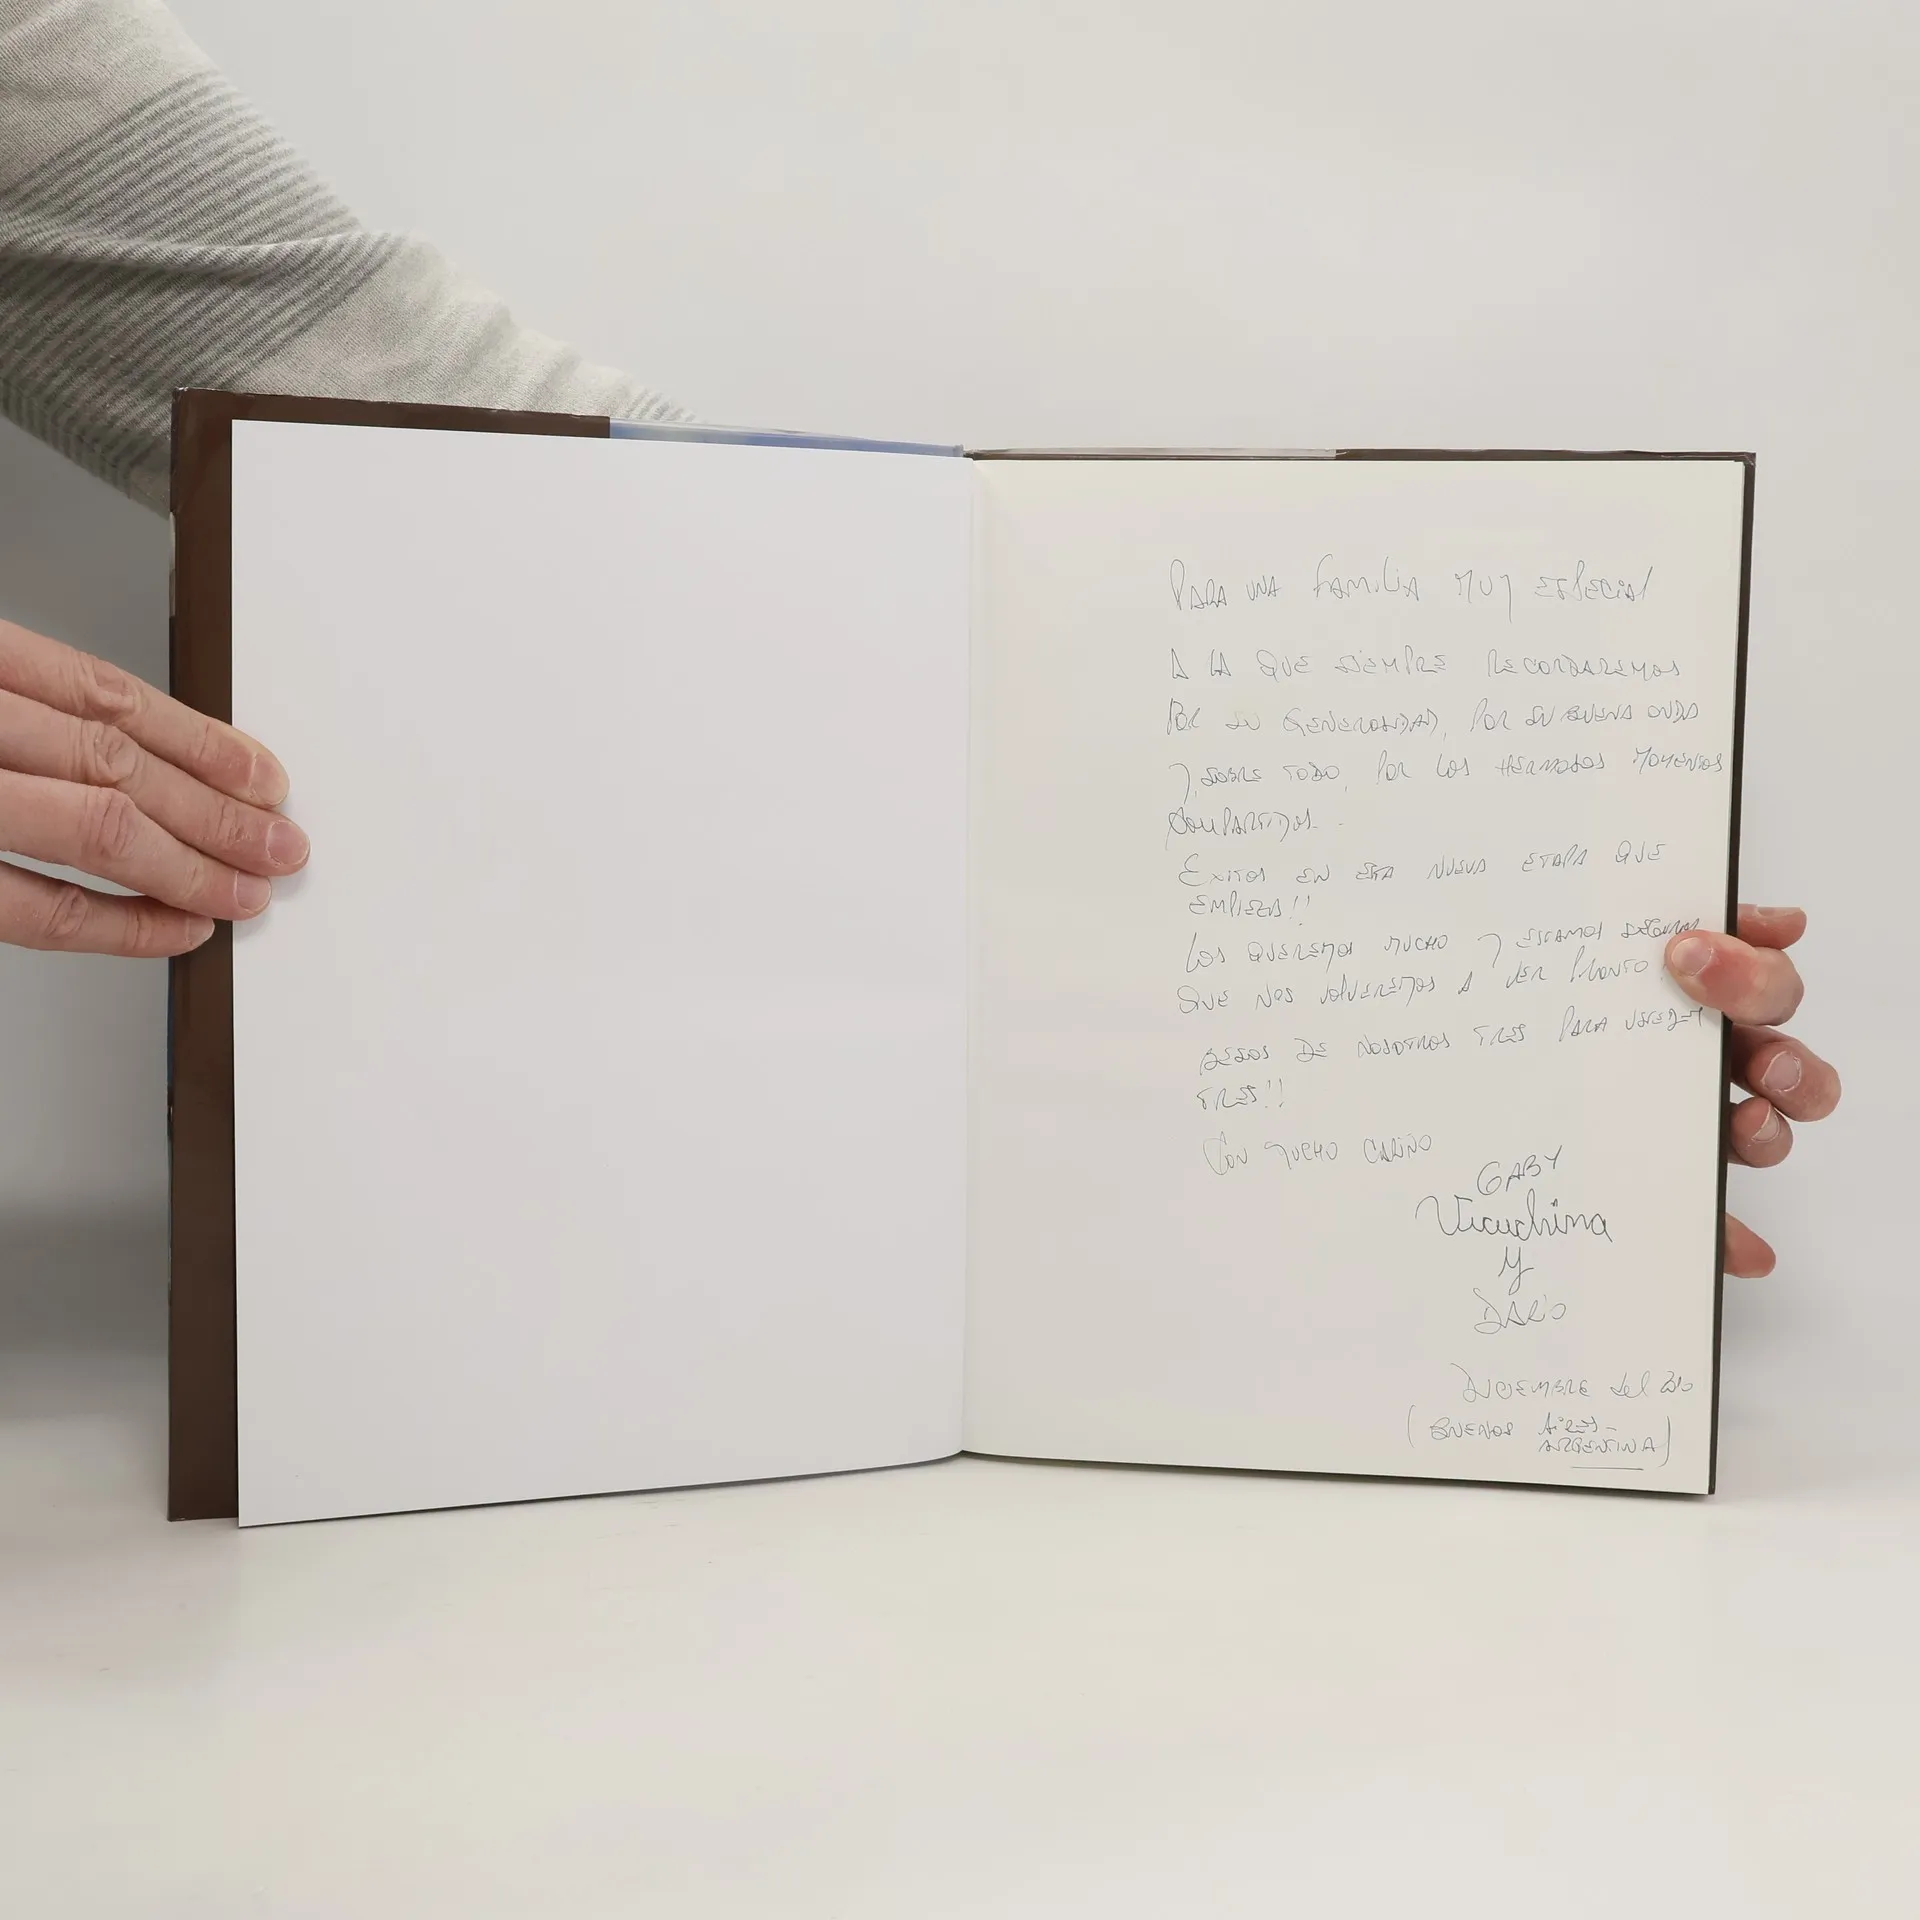 PARA UNA FAMILIA MUY ESPECIAL
A LA QUE SIEMPRE RECORDAREMOS
POR SU GENEROSIDAD, POR SU BUENA ONDA
Y, SOBRE TODO, POR LOS HERMOSOS MOMENTOS
COMPARTIDOS.
EXITOS EN ESTA NUEVA ETAPA QUE
EMPIEZA!!
LOS QUEREMOS MUCHO Y ESTAMOS SEGUROS
QUE NOS VOLVEREMOS A VER PRONTO!
BESOS DE NOSOTROS TRES PARA USTEDES
TRES!!
CON MUCHO CARIÑO
GABY
Vicuchina
Y
DARÍO
DICIEMBRE del
(BUENOS AIRES-
ARGENTINA)